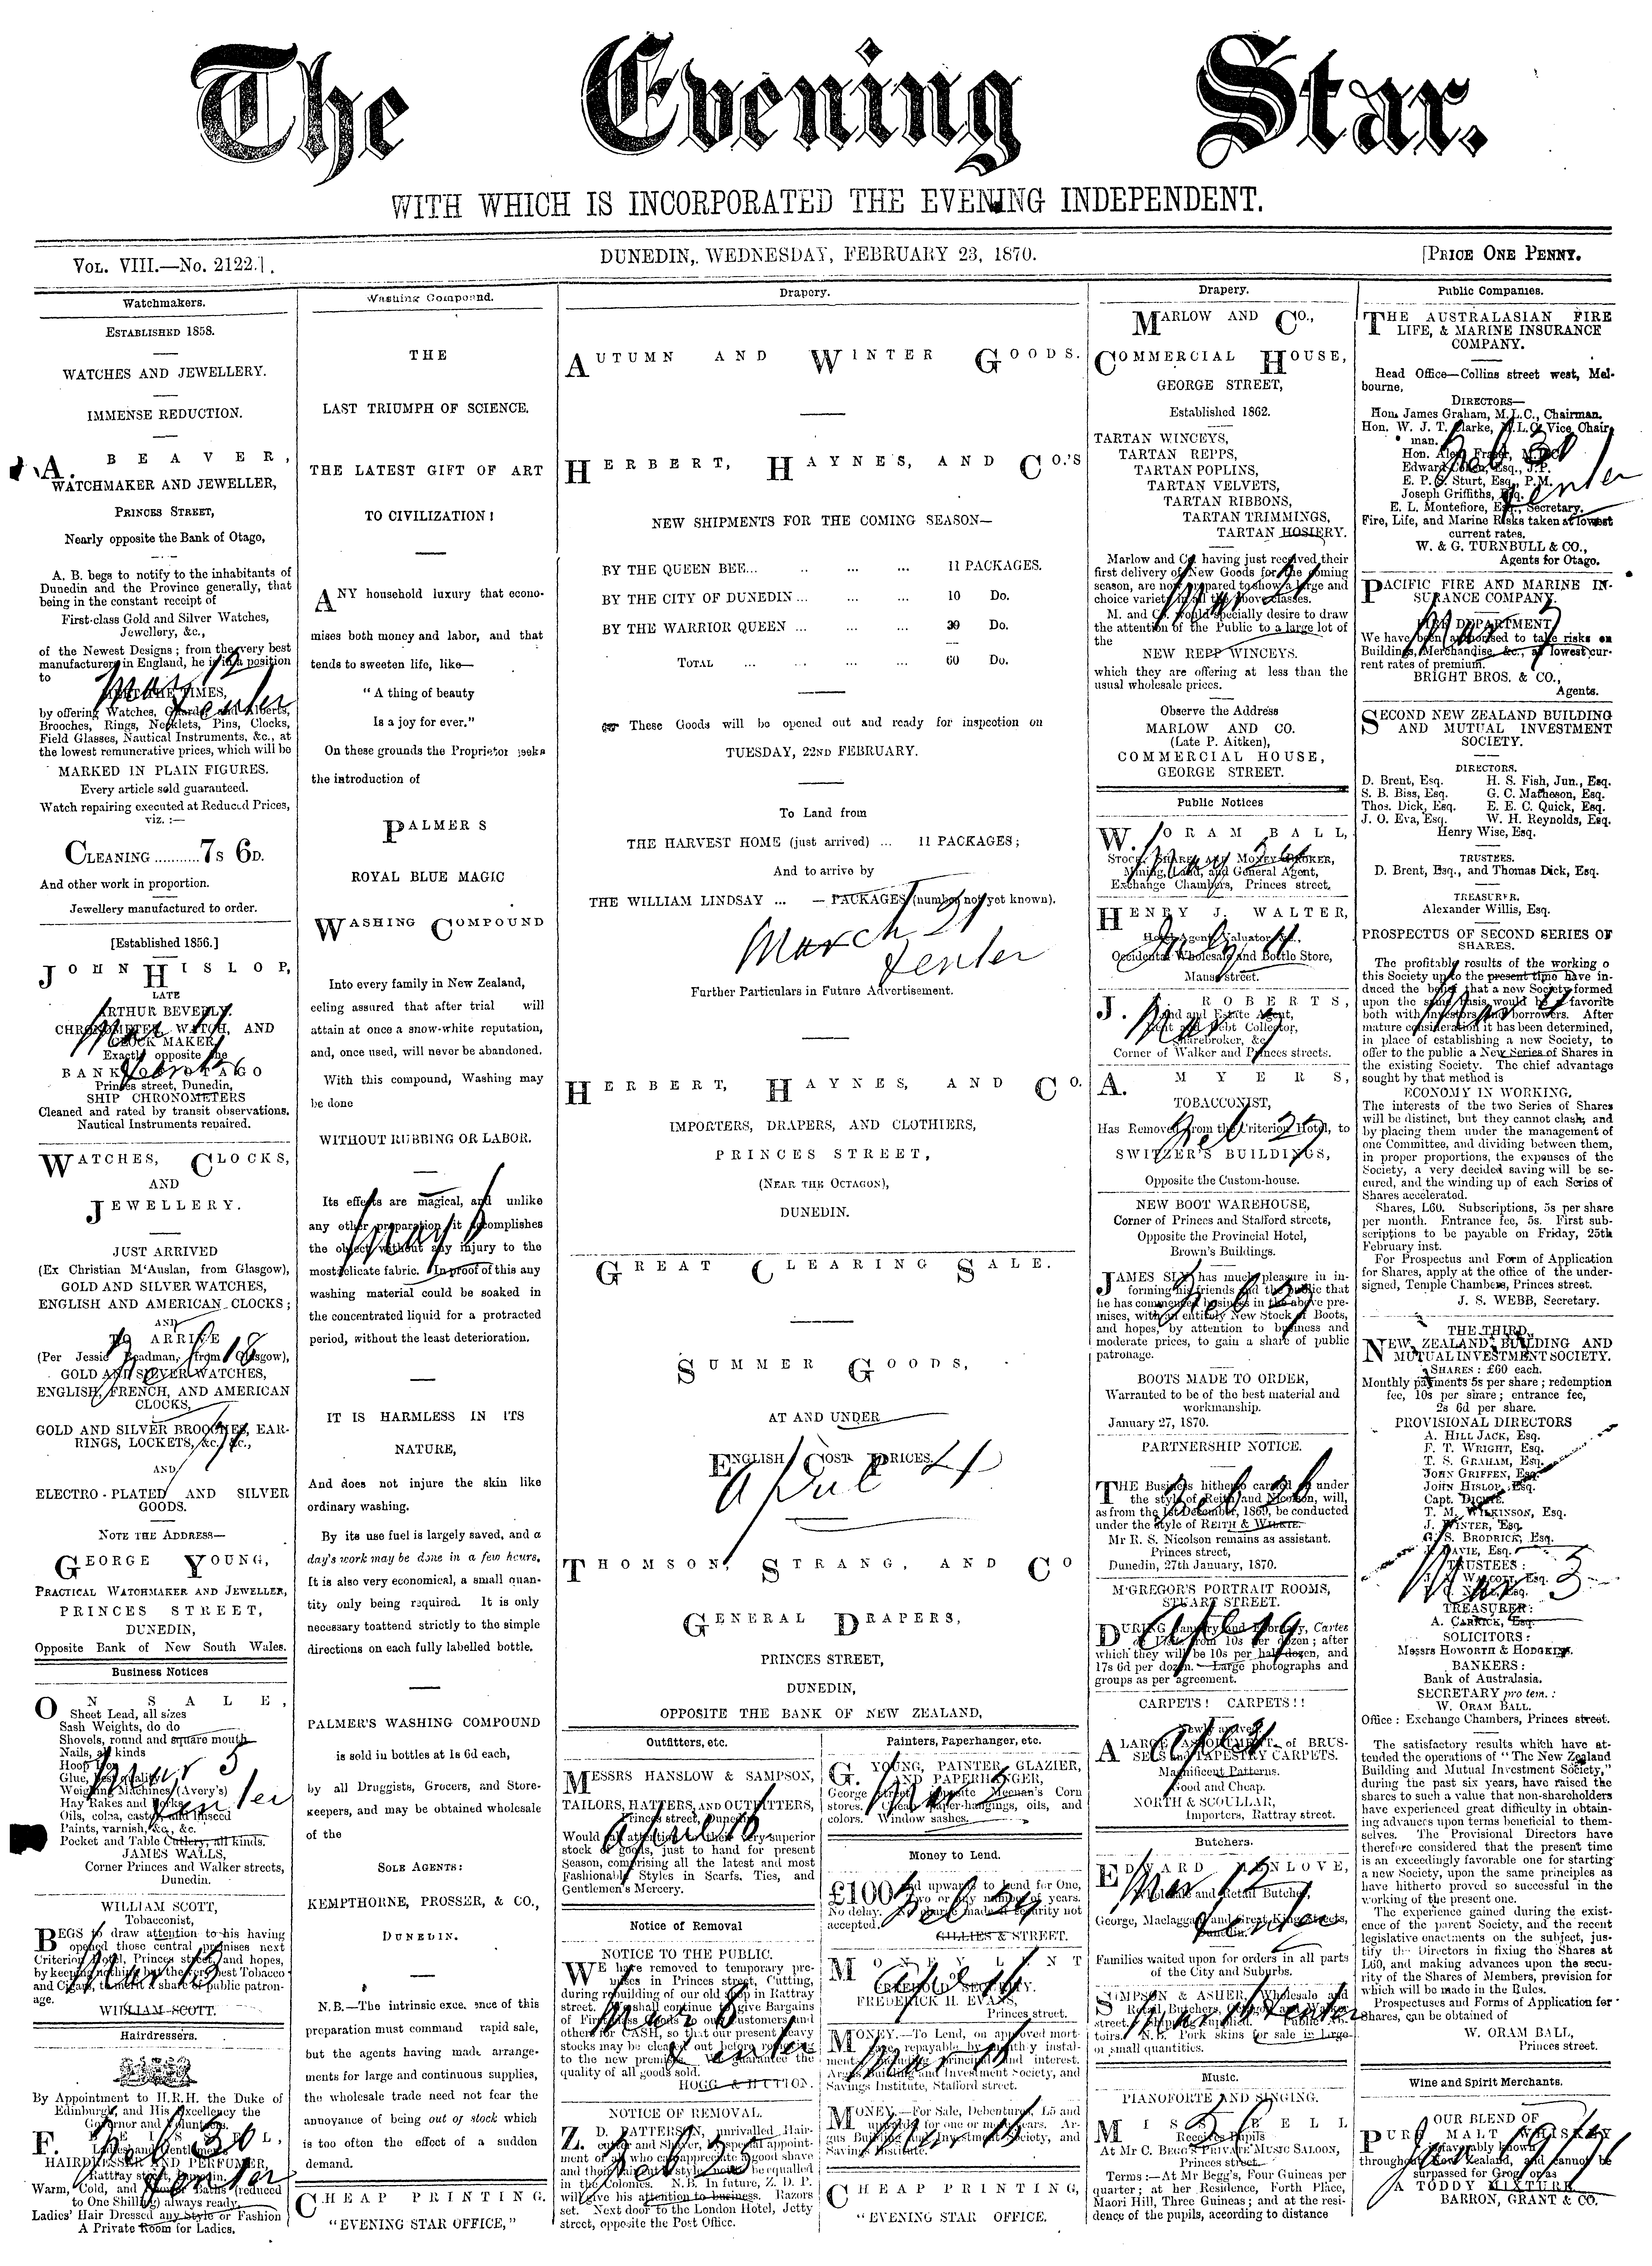 The Evening Star.
WITH WHICH IS INCORPORATED THE EVENING INDEPENDENT.
VOL. VIII.—No. 2122.]
DUNEDIN, WEDNESDAY, FEBRUARY 23, 1870.
[PRICE ONE PENNY.
Watchmakers.
ESTABLISHED 1858.
WATCHES AND JEWELLERY.
IMMENSE REDUCTION.
A. BEAVER,
WATCHMAKER AND JEWELLER,
PRINCES STREET,
Nearly opposite the Bank of Otago,
A. B. begs to notify to the inhabitants of
Dunedin and the Province generally, that
being in the constant receipt of
First-class Gold and Silver Watches,
Jewellery, &c.,
of the Newest Designs; from the very best
manufacturers in England, he is in a position
to
MEET THE TIMES,
by offering Watches, Guards, and Alberts,
Brooches, Rings, Necklets, Pins, Clocks,
Field Glasses, Nautical Instruments, &c., at
the lowest remunerative prices, which will be
MARKED IN PLAIN FIGURES.
Every article sold guaranteed.
Watch repairing executed at Reduced Prices,
viz. :—
CLEANING ..........7s 6D.
And other work in proportion.
Jewellery manufactured to order.
[Established 1856.]
JOHN HISLOP,
LATE
ARTHUR BEVERLY.
CHRONOMETER, WATCH, AND
CLOCK MAKER,
Exactly opposite the
BANK OF OTAGO
Princes street, Dunedin,
SHIP CHRONOMETERS
Cleaned and rated by transit observations.
Nautical Instruments repaired.
WATCHES, CLOCKS,
AND
JEWELLERY.
JUST ARRIVED
(Ex Christian M'Auslan, from Glasgow),
GOLD AND SILVER WATCHES,
ENGLISH AND AMERICAN CLOCKS;
AND
TO ARRIVE
(Per Jessie Readman, from Glasgow),
GOLD AND SILVER WATCHES,
ENGLISH, FRENCH, AND AMERICAN
CLOCKS,
GOLD AND SILVER BROOCHES, EAR-
RINGS, LOCKETS, &c., &c.,
AND
ELECTRO-PLATED AND SILVER
GOODS.
NOTE THE ADDRESS—
GEORGE YOUNG,
PRACTICAL WATCHMAKER AND JEWELLER,
PRINCES STREET,
DUNEDIN,
Opposite Bank of New South Wales.
Business Notices
ON SALE,
Sheet Lead, all sizes
Sash Weights, do do
Shovels, round and square mouth
Nails, all kinds
Hoop Iron
Glue, best quality
Weighing Machines (Avery's)
Hay Rakes and Forks
Oils, colza, castor, and linseed
Paints, varnish, &c., &c.
Pocket and Table Cutlery, all kinds.
JAMES WALLS,
Corner Princes and Walker streets,
Dunedin.
WILLIAM SCOTT,
Tobacconist,
BEGS to draw attention to his having
opened those central premises next
Criterion Hotel, Princes street, and hopes,
by keeping nothing but the very best Tobacco
and Cigars, to merit a share of public patron-
age.
WILLIAM SCOTT.
Hairdressers.
By Appointment to H.R.H. the Duke of
Edinburgh, and His Excellency the
Governor and Volunteers.
HAIRDRESSER AND PERFUMER,
Rattray street, Dunedin.
Warm, Cold, and Shower Baths (reduced
to One Shilling) always ready.
Ladies' Hair Dressed any Style or Fashion
A Private Room for Ladies.
Washing Compound.
THE
LAST TRIUMPH OF SCIENCE.
THE LATEST GIFT OF ART
TO CIVILIZATION!
ANY household luxury that econo-
mises both money and labor, and that
tends to sweeten life, like—
"A thing of beauty
Is a joy for ever."
On these grounds the Proprietor seeks
the introduction of
PALMERS
ROYAL BLUE MAGIC
WASHING COMPOUND
Into every family in New Zealand,
eeling assured that after trial will
attain at once a snow-white reputation,
and, once used, will never be abandoned.
With this compound, Washing may
be done
WITHOUT RUBBING OR LABOR.
Its effects are magical, and unlike
any other preparation, it accomplishes
the object without any injury to the
most delicate fabric. In proof of this any
washing material could be soaked in
the concentrated liquid for a protracted
period, without the least deterioration.
IT IS HARMLESS IN ITS
NATURE,
And does not injure the skin like
ordinary washing.
By its use fuel is largely saved, and a
day's work may be done in a few hours.
It is also very economical, a small quan-
tity only being required. It is only
necessary toattend strictly to the simple
directions on each fully labelled bottle.
PALMER'S WASHING COMPOUND
is sold in bottles at 1s 6d each,
by all Druggists, Grocers, and Store-
keepers, and may be obtained wholesale
of the
SOLE AGENTS:
KEMPTHORNE, PROSSER, & CO.,
DUNEDIN.
N.B.—The intrinsic exce. ence of this
preparation must command rapid sale,
but the agents having made arrange-
ments for large and continuous supplies,
the wholesale trade need not fear the
annoyance of being out of stock which
is too often the effect of a sudden
demand.
CHEAP PRINTING.
"EVENING STAR OFFICE,"
Drapery.
AUTUMN AND WINTER GOODS.
HERBERT, HAYNES, AND CO.'S
NEW SHIPMENTS FOR THE COMING SEASON—
BY THE QUEEN BEE... .. ... ... 11 PACKAGES.
BY THE CITY OF DUNEDIN ... ... ... 10 Do.
BY THE WARRIOR QUEEN ... ... ... 39 Do.
TOTAL ... ... ... ... 60 Do.
These Goods will be opened out and ready for inspection on
TUESDAY, 22ND FEBRUARY.
To Land from
THE HARVEST HOME (just arrived) ... 11 PACKAGES;
And to arrive by
THE WILLIAM LINDSAY ... — PACKAGES (number not yet known).
March 21
Further Particulars in Future Advertisement.
HERBERT, HAYNES, AND CO.
IMPORTERS, DRAPERS, AND CLOTHIERS,
PRINCES STREET,
(NEAR THE OCTAGON),
DUNEDIN.
GREAT CLEARING SALE.
SUMMER GOODS,
AT AND UNDER
ENGLISH COST PRICES.
THOMSON, STRANG, AND CO
GENERAL DRAPERS,
PRINCES STREET,
DUNEDIN,
OPPOSITE THE BANK OF NEW ZEALAND,
Outfitters, etc.
MESSRS HANSLOW & SAMPSON,
TAILORS, HATTERS, AND OUTFITTERS,
Princes street, Dunedin,
Would call attention to their very superior
stock of goods, just to hand for present
Season, comprising all the latest and most
Fashionable Styles in Scarfs, Ties, and
Gentlemen's Mercery.
Notice of Removal
NOTICE TO THE PUBLIC.
WE have removed to temporary pre-
mises in Princes street, Cutting,
during rebuilding of our old shop in Rattray
street. We shall continue to give Bargains
of First-class Goods to our Customers and
others for CASH, so that our present heavy
stocks may be cleared out before removing
to the new premises. We guarantee the
quality of all goods sold.
HOGG & HUTTON.
NOTICE OF REMOVAL.
Z. D. PATTERSON, unrivalled Hair-
cutter and Shaver, by special appoint-
ment of all who can appreciate a good shave
and their hair cut in style, not to be equalled
in the Colonies. N.B. In future, Z. D. P.
will give his attention to business. Razors
set. Next door to the London Hotel, Jetty
street, opposite the Post Office.
Painters, Paperhanger, etc.
G. YOUNG, PAINTER, GLAZIER,
AND PAPERHANGER,
George Street, opposite Meenan's Corn
stores. Cheap paper-hangings, oils, and
colors. Window sashes.
Money to Lend.
£100 and upwards to Lend for One,
Two or any number of years.
No delay. No charge made if security not
accepted.
GILLIES & STREET.
MONEY LENT
FREEHOLD SECURITY.
FREDERICK H. EVANS,
Princes street.
MONEY.—To Lend, on approved mort-
gage, repayable by monthly instal-
ments, including principal and interest.
Argus Building and Investment Society, and
Savings Institute, Stafford street.
MONEY.—For Sale, Debentures, L5 and
upwards, for one or more years. Ar-
gus Building and Investment Society, and
Savings Institute.
CHEAP PRINTING,
"EVENING STAR OFFICE.
Drapery.
MARLOW AND CO.,
COMMERCIAL HOUSE,
GEORGE STREET,
Established 1862.
TARTAN WINCEYS,
TARTAN REPPS,
TARTAN POPLINS,
TARTAN VELVETS,
TARTAN RIBBONS,
TARTAN TRIMMINGS,
TARTAN HOSIERY.
Marlow and Co. having just received their
first delivery of New Goods for the coming
season, are now prepared to show a large and
choice variety in all the above classes.
M. and Co. would specially desire to draw
the attention of the Public to a large lot of
the
NEW REPP WINCEYS.
which they are offering at less than the
usual wholesale prices.
Observe the Address
MARLOW AND CO.
(Late P. Aitken),
COMMERCIAL HOUSE,
GEORGE STREET.
Public Notices
W. ORAM BALL,
STOCK, SHARE, AND MONEY BROKER,
Mining, Land, and General Agent,
Exchange Chambers, Princes street.
HENRY J. WALTER,
Hotel Agent, Valuator &c.,
Occidental Wholesale and Bottle Store,
Manse street.
J. ROBERTS,
Land and Estate Agent,
Rent and Debt Collector,
Sharebroker, &c.
Corner of Walker and Princes streets.
A. MYERS,
TOBACCONIST,
Has Removed from the Criterion Hotel, to
SWITZER'S BUILDINGS,
Opposite the Custom-house.
NEW BOOT WAREHOUSE,
Corner of Princes and Stafford streets,
Opposite the Provincial Hotel,
Brown's Buildings.
JAMES SLY has much pleasure in in-
forming his friends and the public that
he has commenced business in the above pre-
mises, with an entirely New Stock of Boots,
and hopes, by attention to business and
moderate prices, to gain a share of public
patronage.
BOOTS MADE TO ORDER,
Warranted to be of the best material and
workmanship.
January 27, 1870.
PARTNERSHIP NOTICE.
THE Business hitherto carried on under
the style of Reith and Nicolson, will,
as from the 1st December, 1869, be conducted
under the style of REITH & WILKIE.
Mr R. S. Nicolson remains as assistant.
Princes street,
Dunedin, 27th January, 1870.
M'GREGOR'S PORTRAIT ROOMS,
STUART STREET.
DURING January and February, Cartes
de Visite from 10s per dozen; after
which they will be 10s per half dozen, and
17s 6d per dozen. Large photographs and
groups as per agreement.
CARPETS! CARPETS!!
Newly arrived.
A LARGE ASSORTMENT of BRUS-
SELS and TAPESTRY CARPETS.
Magnificent Patterns.
Good and Cheap.
NORTH & SCOULLAR,
Importers, Rattray street.
Butchers.
EDWARD MENLOVE,
Wholesale and Retail Butcher,
George, Maclaggan, and Great King streets,
Dunedin.
Families waited upon for orders in all parts
of the City and Suburbs.
SIMPSON & ASHER, Wholesale and
Retail Butchers,
street.
toirs. N.B. Pork skins for sale in large
or small quantities.
Music.
PIANOFORTE AND SINGING.
MISS BELL
Receives Pupils
At Mr C. BEGG'S PRIVATE MUSIC SALOON,
Princes street.
Terms:—At Mr Begg's, Four Guineas per
quarter; at her Residence, Forth Place,
Maori Hill, Three Guineas; and at the resi-
dence of the pupils, according to distance
Public Companies.
THE AUSTRALASIAN FIRE
LIFE, & MARINE INSURANCE
COMPANY.
Head Office—Collins street west, Mel-
bourne,
DIRECTORS—
Hon. James Graham, M.L.C., Chairman.
Hon. W. J. T. Clarke, M.L.C. Vice Chair-
man.
Hon. Alex. Fraser, M.L.C.
Edward Cohen, Esq., J.P.
E. P. S. Sturt, Esq., P.M.
Joseph Griffiths, Esq.
E. L. Montefiore, Esq., Secretary.
Fire, Life, and Marine Risks taken at lowest
current rates.
W. & G. TURNBULL & CO.,
Agents for Otago.
PACIFIC FIRE AND MARINE IN-
SURANCE COMPANY.
FIRE DEPARTMENT.
We have been authorised to take risks on
Buildings, Merchandise, &c., at lowest cur-
rent rates of premium.
BRIGHT BROS. & CO.,
Agents.
SECOND NEW ZEALAND BUILDING
AND MUTUAL INVESTMENT
SOCIETY.
DIRECTORS.
D. Brent, Esq. H. S. Fish, Jun., Esq.
S. B. Biss, Esq. G. C. Matheson, Esq.
Thos. Dick, Esq. E. E. C. Quick, Esq.
J. O. Eva, Esq. W. H. Reynolds, Esq.
Henry Wise, Esq.
TRUSTEES.
D. Brent, Esq., and Thomas Dick, Esq.
TREASURER.
Alexander Willis, Esq.
PROSPECTUS OF SECOND SERIES OF
SHARES.
The profitable results of the working o
this Society up to the present time have in-
duced the belief that a new Society formed
upon the same basis would be a favorite
both with investors and borrowers. After
mature consideration it has been determined,
in place of establishing a new Society, to
offer to the public a New Series of Shares in
the existing Society. The chief advantage
sought by that method is
ECONOMY IN WORKING.
The interests of the two Series of Shares
will be distinct, but they cannot clash, and
by placing them under the management of
one Committee, and dividing between them,
in proper proportions, the expenses of the
Society, a very decided saving will be se-
cured, and the winding up of each Series of
Shares accelerated.
Shares, L60. Subscriptions, 5s per share
per month. Entrance fee, 5s. First sub-
scriptions to be payable on Friday, 25th
February inst.
For Prospectus and Form of Application
for Shares, apply at the office of the under-
signed, Temple Chambers, Princes street.
J. S. WEBB, Secretary.
THE THIRD
NEW ZEALAND BUILDING AND
MUTUAL INVESTMENT SOCIETY.
SHARES: £60 each.
Monthly payments 5s per share; redemption
fee, 10s per share; entrance fee,
2s 6d per share.
PROVISIONAL DIRECTORS
A. HILL JACK, Esq.
F. T. WRIGHT, Esq.
T. S. GRAHAM, Esq.
JOHN GRIFFEN, Esq.
JOHN HISLOP, Esq.
Capt.
T. M. WILKINSON, Esq.
J. WINTER, Esq.
G. S. BRODRICK, Esq.
J. DAVIE, Esq.
TRUSTEES:
TREASURER:
A. CARRICK, Esq.
SOLICITORS:
Messrs HOWORTH & HODGKINS.
BANKERS:
Bank of Australasia.
SECRETARY pro tem.:
W. ORAM BALL.
Office: Exchange Chambers, Princes street.
The satisfactory results which have at-
tended the operations of "The New Zealand
Building and Mutual Investment Society,"
during the past six years, have raised the
shares to such a value that non-shareholders
have experienced great difficulty in obtain-
ing advances upon terms beneficial to them-
selves. The Provisional Directors have
therefore considered that the present time
is an exceedingly favorable one for starting
a new Society, upon the same principles as
have hitherto proved so successful in the
working of the present one.
The experience gained during the exist-
ence of the parent Society, and the recent
legislative enactments on the subject, jus-
tify the Directors in fixing the Shares at
L60, and making advances upon the secu-
rity of the Shares of Members, provision for
which will be made in the Rules.
Prospectuses and Forms of Application for
Shares, can be obtained of
W. ORAM BALL,
Princes street.
Wine and Spirit Merchants.
OUR BLEND OF
PURE MALT WHISKEY
favorably known
throughout New Zealand, and cannot be
surpassed for Grog, or as
A TODDY MIXTURE.
BARRON, GRANT & CO.